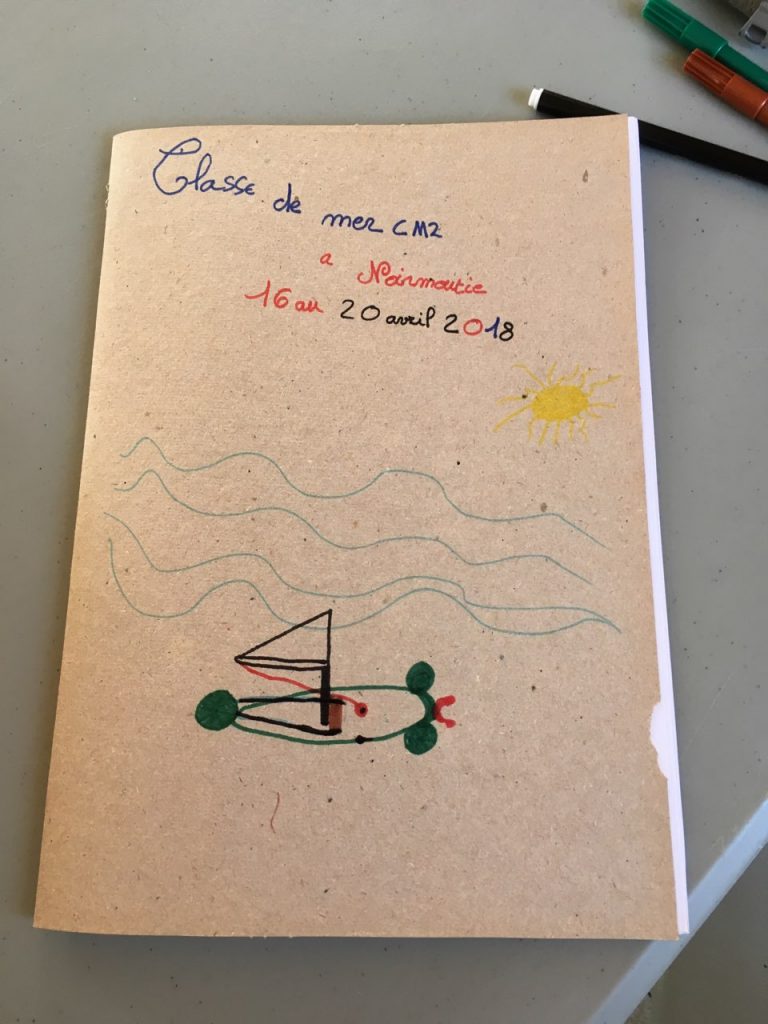 Classe de mer CM2
a Noirmoutie
16 au 20 avril 2018